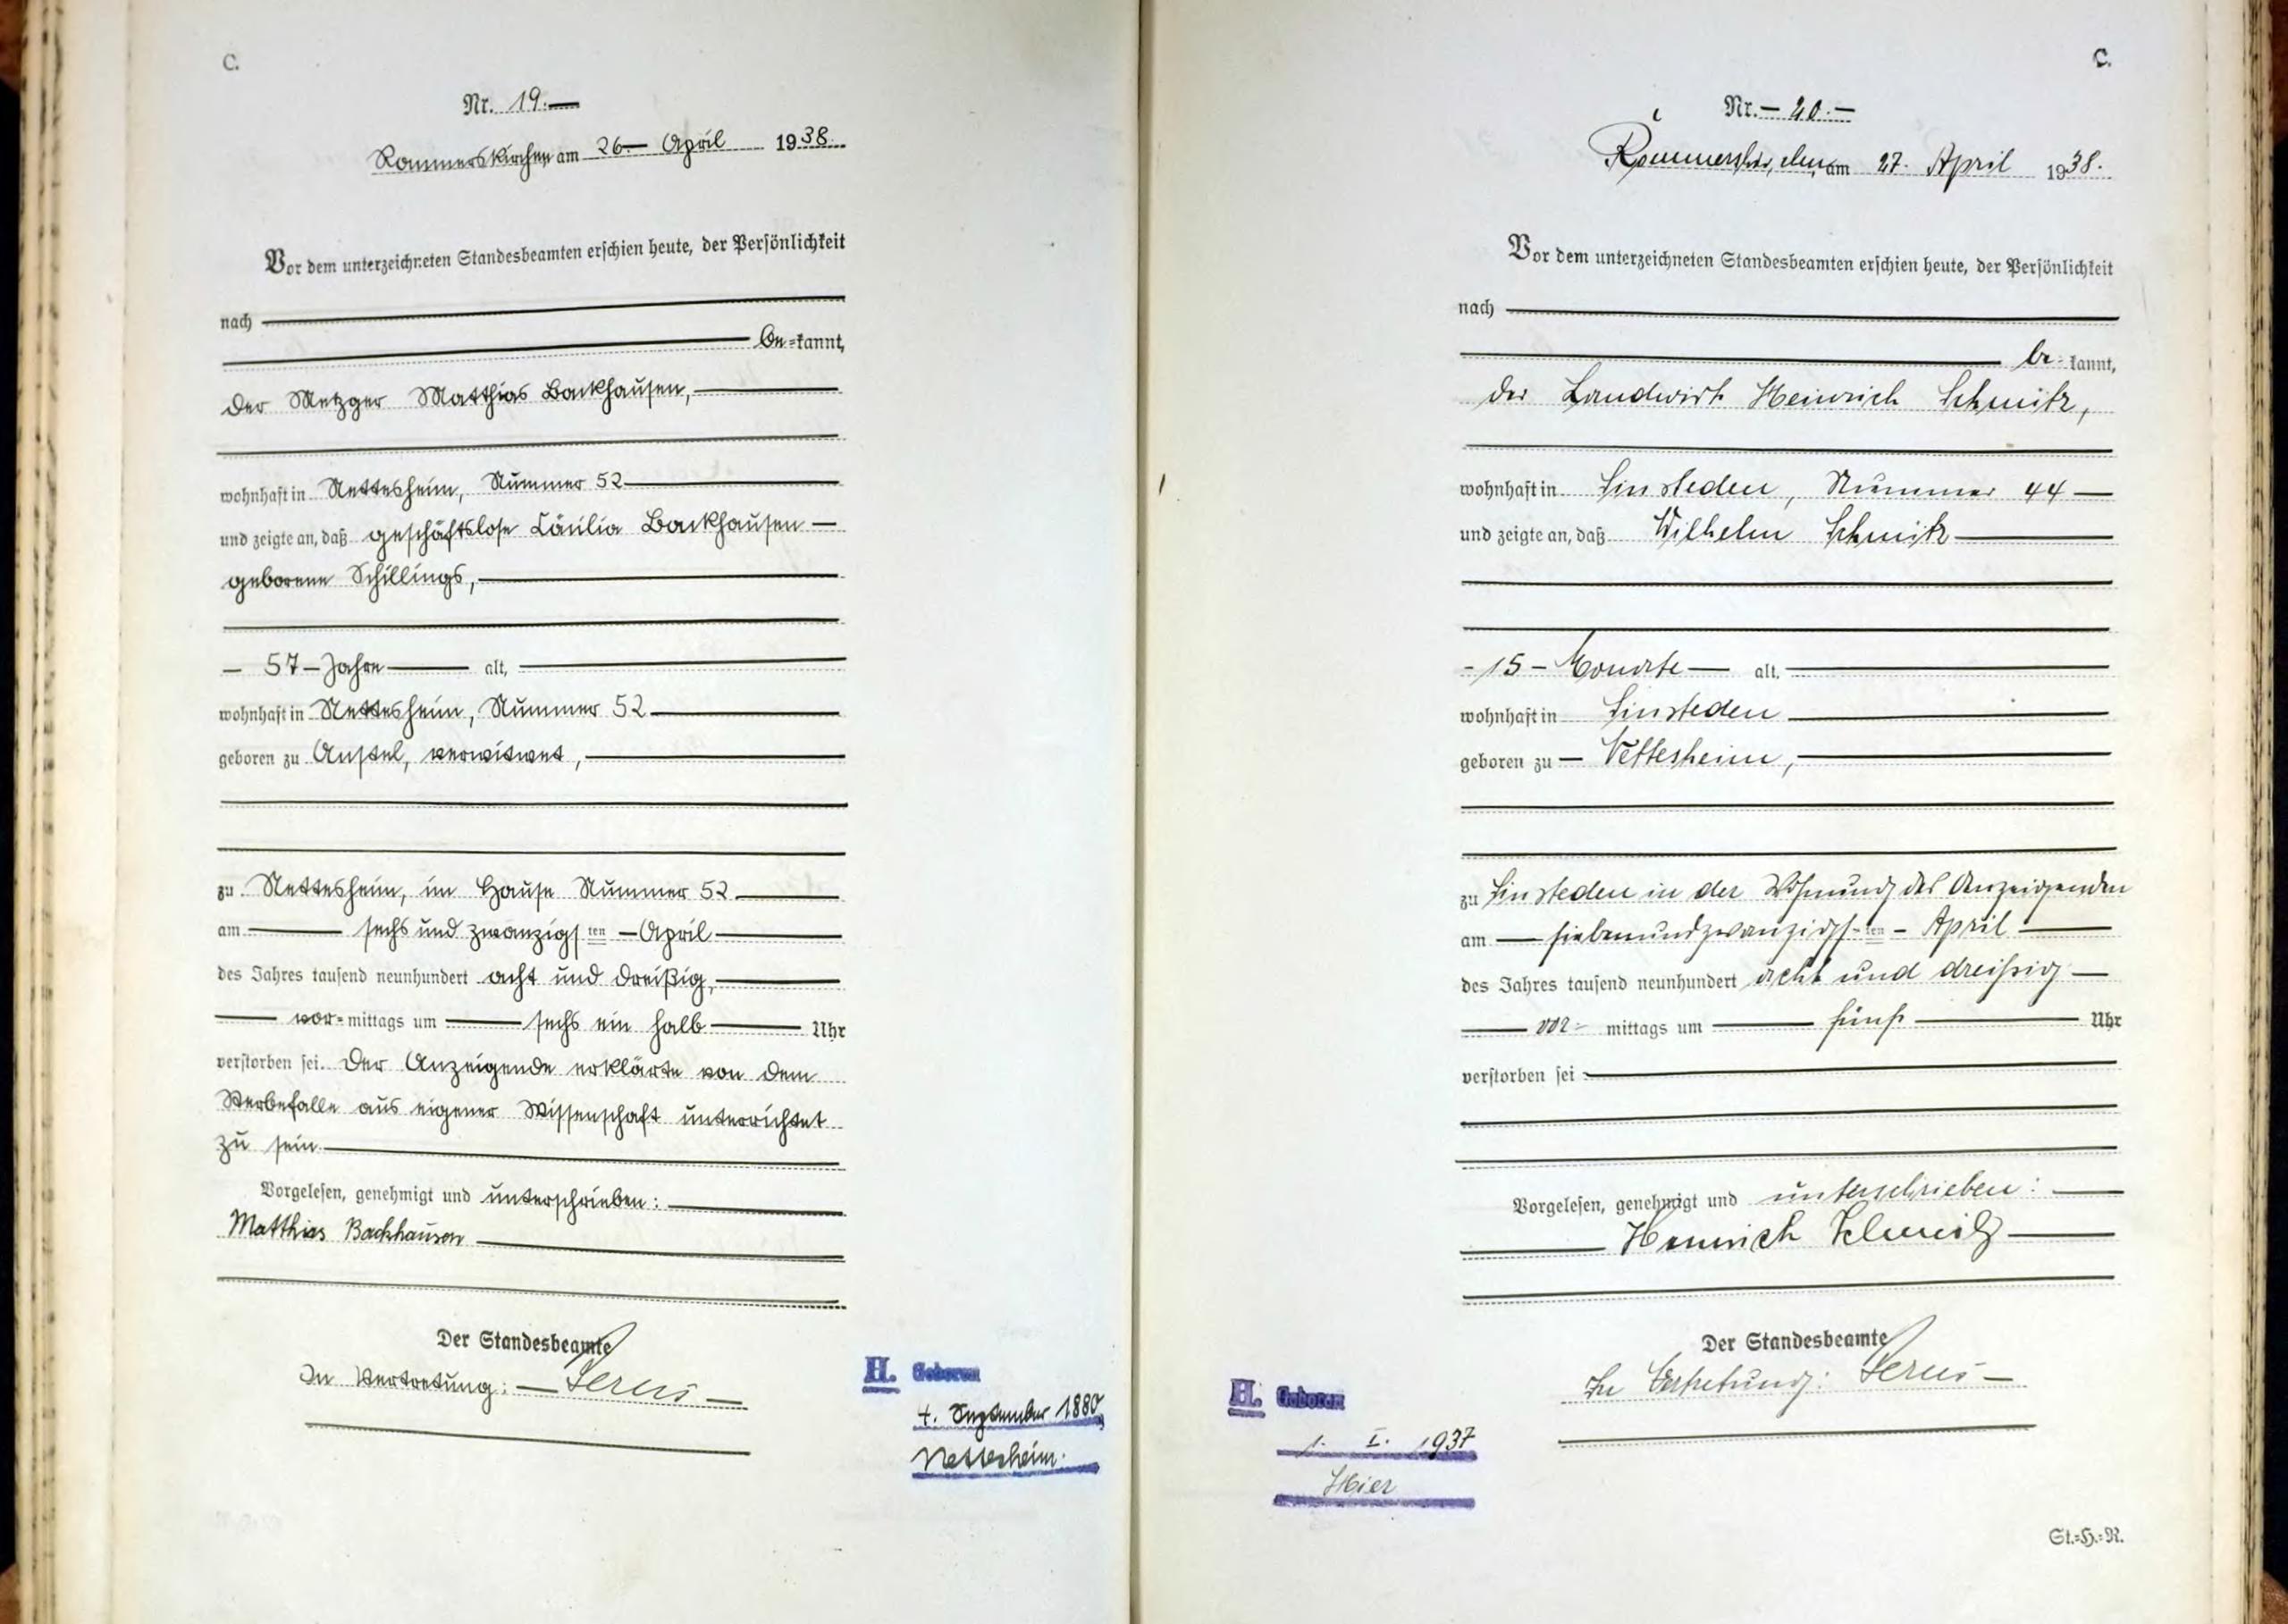 C.
Nr. 19.—
Rommerskirchen am 26. April 1938.
Vor dem unterzeichneten Standesbeamten erschien heute, der Persönlichkeit
nach
be=kannt,
der Metzger Matthias Backhausen,
wohnhaft in Nettesheim, Nummer 52
und zeigte an, daß geschäftslose Cäcilia Backhausen
geborene Schillings,
— 57 — Jahre — alt,
wohnhaft in Nettesheim, Nummer 52
geboren zu Anstel, verwitwet,
zu Nettesheim, im Hause Nummer 52
am sechs und zwanzigsten April
des Jahres tausend neunhundert acht und dreißig,
vor=mittags um sechs ein halb Uhr
verstorben sei. Der Anzeigende erklärte von dem
Sterbefalle aus eigener Wissenschaft unterrichtet
zu sein.
Vorgelesen, genehmigt und unterschrieben:
Matthias Backhausen
Der Standesbeamte
In Vertretung:
H. Geboren
4. September 1880
Nettesheim.
C.
Nr. — 20. —
Rommerskirchen am 27. April 1938.
Vor dem unterzeichneten Standesbeamten erschien heute, der Persönlichkeit
nach
be=kannt,
der Landwirt Heinrich Schmitz,
wohnhaft in Sinsteden, Nummer 44
und zeigte an, daß Wilhelm Schmitz
- 15 - Monate — alt,
wohnhaft in Sinsteden
geboren zu — Nettesheim,
zu Sinsteden in der Wohnung des Anzeigenden
am siebenundzwanzigsten - April
des Jahres tausend neunhundert acht und dreißig
vor= mittags um fünf Uhr
verstorben sei
Vorgelesen, genehmigt und unterschrieben:
Heinrich Schmitz
Der Standesbeamte
In Vertretung:
H. Geboren
1. I. 1937
Hier
St.=H.=R.